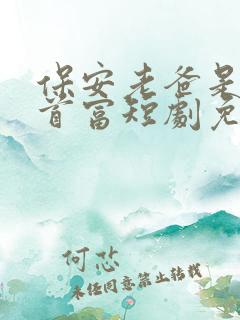 保安老爸是
首富短劇免
何芯
未经同意禁止转载